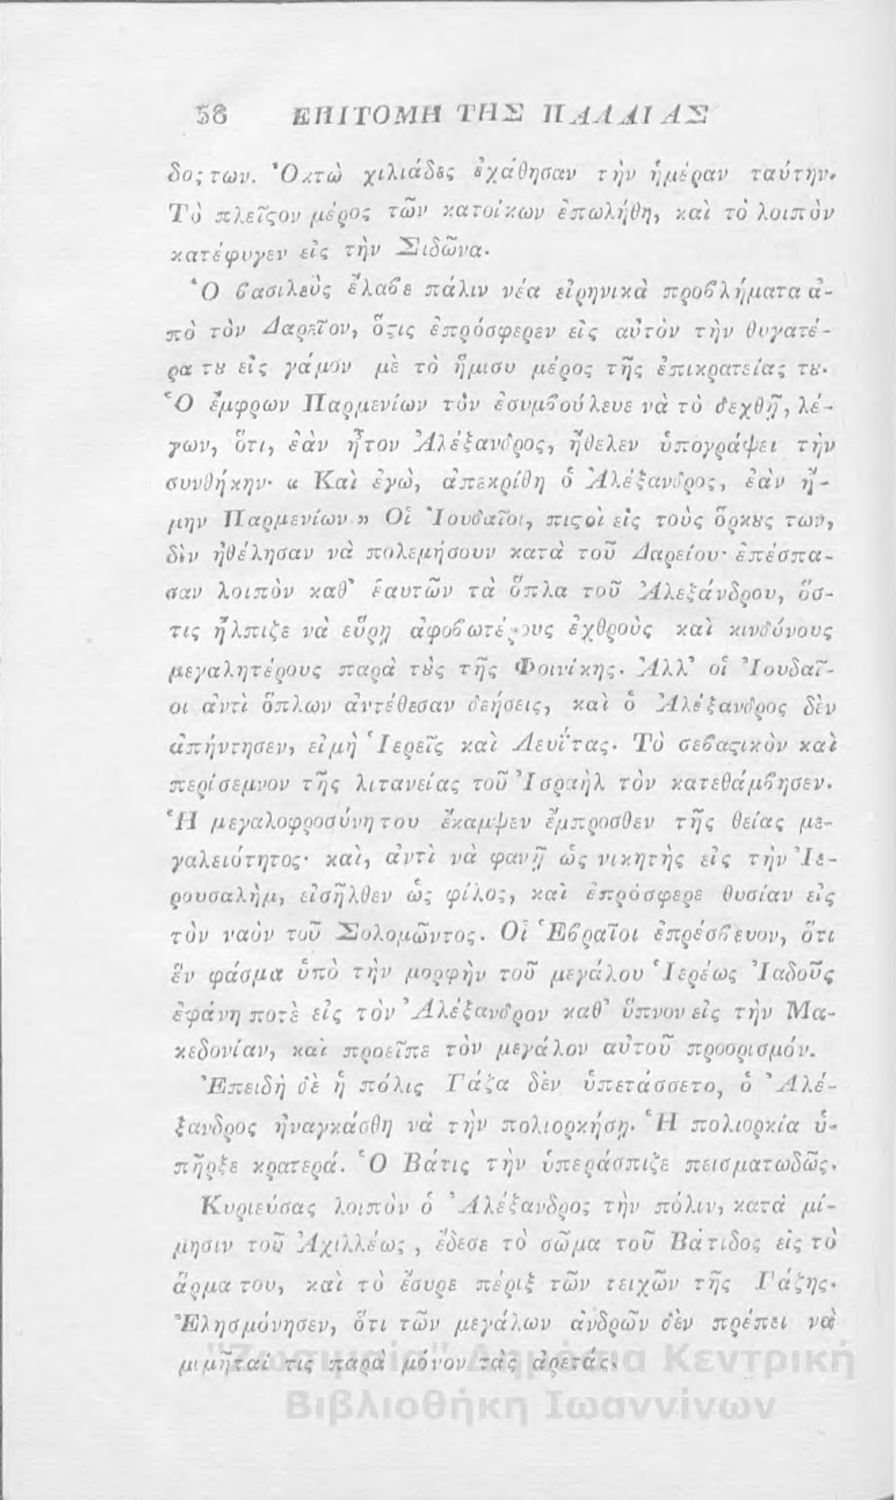 58 ΕΠΙΤΟΜΗ ΤΗΣ ΠΑΛΑΙΑΣ
δος των. Ὀκτὼ χιλιάδες ἐχάθησαν τὴν ἡμέραν ταύτην.
Τὸ πλεῖϛον μέρος τῶν κατοίκων ἐπωλήθη, καὶ τὸ λοιπὸν
κατέφυγεν εἰς τὴν Σιδῶνα.
Ὁ ϐασιλεὺς ἔλαϐε πάλιν νέα εἰρηνικὰ προϐλήματα ἀ-
πὸ τὸν Δαρεῖον, ὅϛις ἐπρόσφερεν εἰς αὐτὸν τὴν θυγατέ-
ρα τȣ εἰς γάμον μὲ τὸ ἥμισυ μέρος τῆς ἐπικρατείας τȣ.
Ὁ ἔμφρων Παρμενίων τὸν ἐσυμϐούλευε νὰ τὸ δεχθῇ, λέ-
γων, ὅτι, ἐὰν ἦτον Ἀλέξανδρος, ἤθελεν ὑπογράψει τὴν
συνθήκην· « Καὶ ἐγὼ, ἀπεκρίθη ὁ Ἀλέξανδρος, ἐὰν ἤ-
μην Παρμενίων » Οἱ Ἰουδαῖοι, πιϛοὶ εἰς τοὺς ὅρκȣς των,
δὲν ἠθέλησαν νὰ πολεμήσουν κατὰ τοῦ Δαρείου· ἐπέσπα-
σαν λοιπὸν καθ' ἑαυτῶν τὰ ὅπλα τοῦ Ἀλεξάνδρου, ὅσ-
τις ἤλπιζε νὰ εὕρῃ ἀφοϐωτέρους ἐχθροὺς καὶ κινδύνους
μεγαλητέρους παρὰ τȣ̀ς τῆς Φοινίκης. Ἀλλ' οἱ Ἰουδαῖ-
οι ἀντὶ ὅπλων ἀντέθεσαν δεήσεις, καὶ ὁ Ἀλέξανδρος δὲν
ἀπήντησεν, εἰμὴ Ἱερεῖς καὶ Λευΐτας. Τὸ σεϐαϛικὸν καὶ
περίσεμνον τῆς λιτανείας τοῦ Ἰσραὴλ τὸν κατεθάμϐησεν.
Ἡ μεγαλοφροσύνη του ἔκαμψεν ἔμπροσθεν τῆς θείας με-
γαλειότητος· καὶ, ἀντὶ νὰ φανῇ ὡς νικητὴς εἰς τὴν Ἱε-
ρουσαλὴμ, εἰσῆλθεν ὡς φίλος, καὶ ἐπρόσφερε θυσίαν εἰς
τὸν ναὸν τοῦ Σολομῶντος. Οἱ Ἑϐραῖοι ἐπρέσϐευον, ὅτι
ἓν φάσμα ὑπὸ τὴν μορφὴν τοῦ μεγάλου Ἱερέως Ἰαδοῦς
ἐφάνη ποτὲ εἰς τὸν Ἀλέξανδρον καθ' ὕπνον εἰς τὴν Μα-
κεδονίαν, καὶ προεῖπε τὸν μεγάλον αὐτοῦ προορισμόν.
Ἐπειδὴ δὲ ἡ πόλις Γάζα δὲν ὑπετάσσετο, ὁ Ἀλέ-
ξανδρος ἠναγκάσθη νὰ τὴν πολιορκήσῃ. Ἡ πολιορκία ὑ-
πῆρξε κρατερά. Ὁ Βάτις τὴν ὑπεράσπιζε πεισματωδῶς.
Κυριεύσας λοιπὸν ὁ Ἀλέξανδρος τὴν πόλιν, κατὰ μί-
μησιν τοῦ Ἀχιλλέως , ἔδεσε τὸ σῶμα τοῦ Βάτιδος εἰς τὸ
ἅρμα του, καὶ τὸ ἔσυρε πέριξ τῶν τειχῶν τῆς Γάζης.
Ἐλησμόνησεν, ὅτι τῶν μεγάλων ἀνδρῶν δὲν πρέπει νὰ
μιμῆται τις παρὰ μόνον τὰς ἀρετάς.
"Ζωσιμαία" Δημόσια Κεντρική
Βιβλιοθήκη Ιωαννίνων